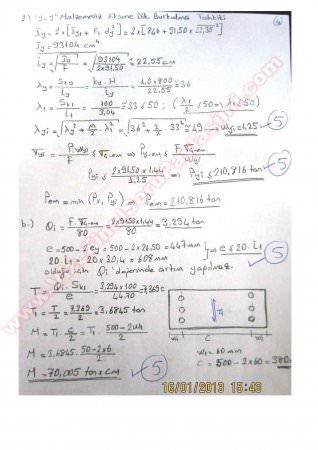 2) "y-y" Malzemesiz Eksene Dik Burkulma Tahkiki
Iy = 2 x [Iy1 + F1 dy²] = 2 x [846 + 91,50 x 22,35²]
Iy = 93104 cm⁴
iy = √(Iy/F) = √(93104/(2x91,50)) ≅ 22,55 cm
λy = Sky/iy = ky.H/iy = 1,0x800/22,55 ≅ 36
λ1 = Sk1/i1 = 100/3,04 ≅ 33 ≤ 50 ;
λyi = √(λy² + m/2 . λ1²) = √(36² + 2/2 . 33²) ≅ 49 → ωyi = 1,25
5
Pyi ≤ 2x91,50x1,44/1,25 ⇒ Pyi ≤ 210,816 ton
5
Pem = min (Px, Pyi) ⇒ Pem = 210,816 ton
b-) Qi = F.σem/80 = 2x91,50x1,44/80 = 3,294 ton
e = 500 - 2 ey = 500 - 2x26,50 = 447 mm
20.i1 = 20x30,4 = 608 mm
e ≤ 20.i1
olduğu için Qi değerinde artım yapılmaz.
5
T = Qi.Sk1/e = 3,294x100/44,70 = 7,369 t
T1 = T/2 = 7,369/2 = 3,6845 ton
M = T1 . c/2 = T1 . 500-2w1/2
M = 3,6845 . 50-2x6/2
M = 70,005 ton x cm
5
T1
w1 c w1
w1 = 60 mm
c = 500 - 2x60 = 380
16/01/2013 15:43